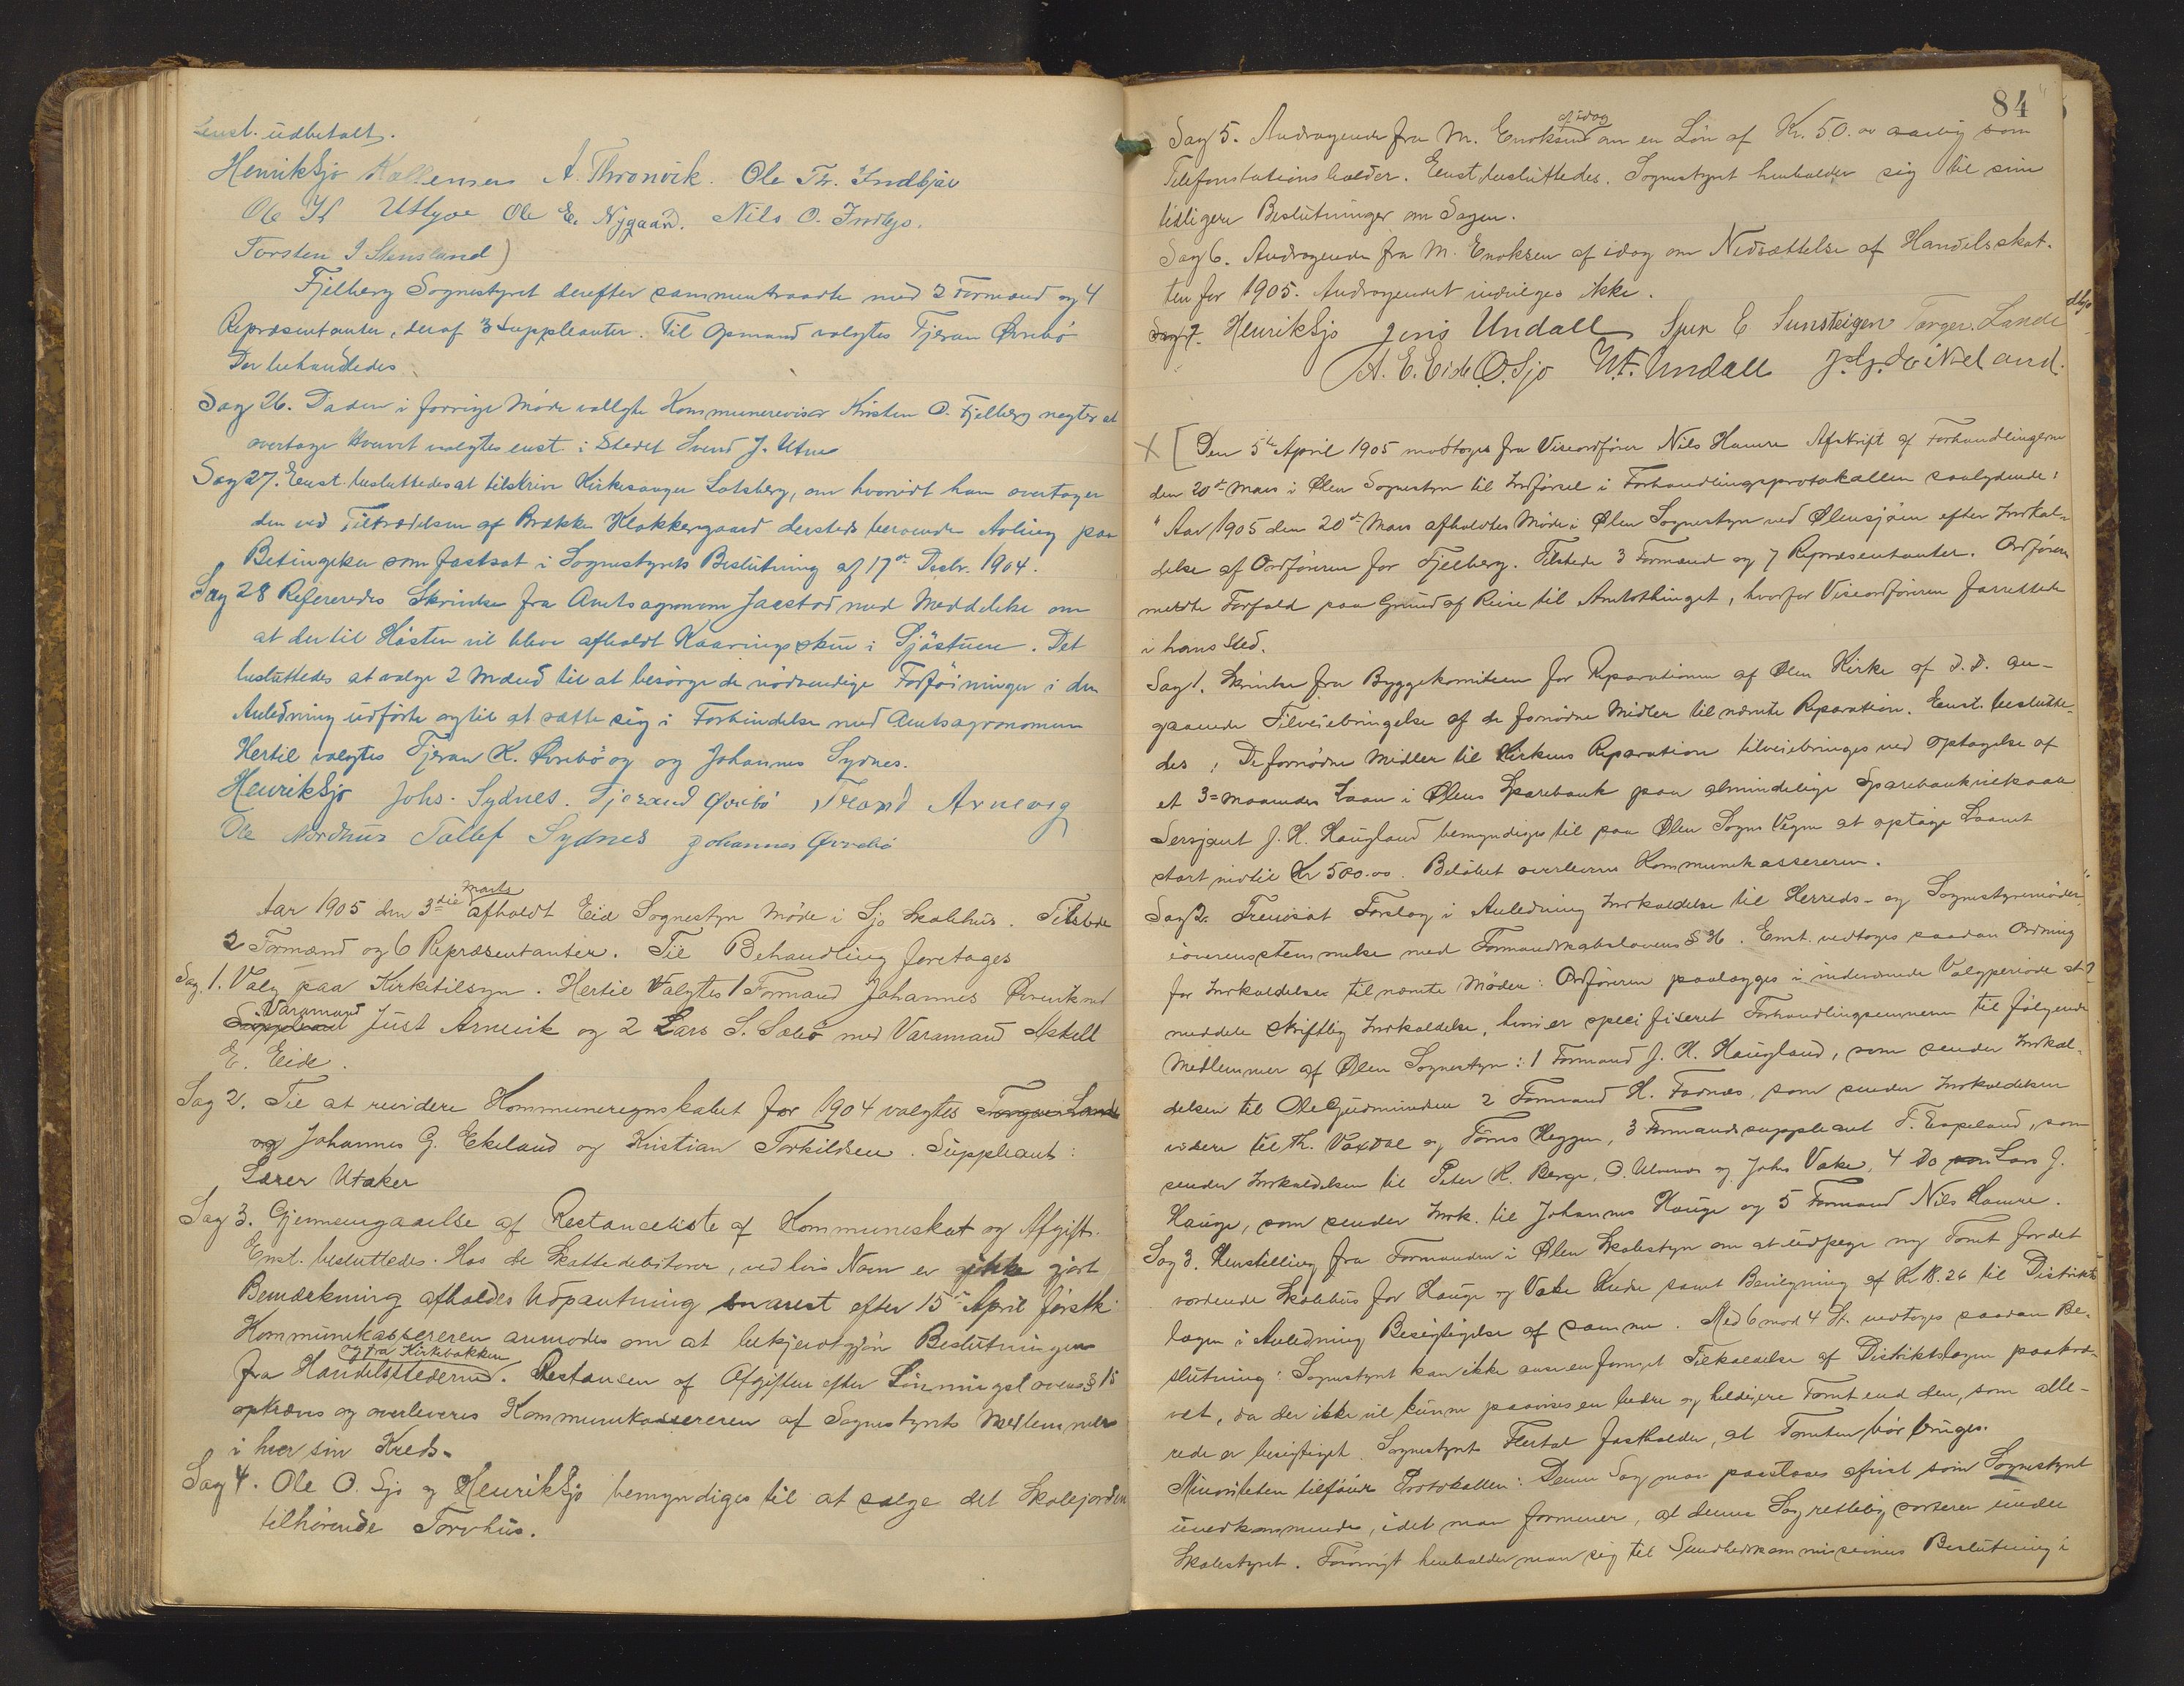 Enst. udbetalt.
Henrik Sjo A. Thronvik. Ole Tr. Indbjo
Ole K Utbjoe Ole E. Nygaard. Nils O. Indbjo.
Torsten I Stensland)
Fjelberg Sognestyret derefter sammentraadte med 2 Formænd og 4
Repræsentanter, deraf 3 Suppleanter. Til Opmand valgtes Tjeran Ørrebö
Der behandledes
Sag 26. Da den i forrige Møde vallgte Kommunerevisor Kristen O. Fjelberg negter at
overtage Hvervet valgtes enst. i Stedet Svend J. Utne
Sag 27. Enst. besluttedes at tilskrive Kirkesanger Lotsberg, om hvorvidt han overtager
den ved Tiltrædelsen af Brække Klokkergaard dersteds beroende Avling paa
Betingelser som fastsat i Sognestyrets Beslutning af 17de Decbr. 1904.
Sag 28 Refereredes Skrivelse fra Amtsagronom Jaastad med Meddelelse om
at der til Høsten vil blive afholdt Kaaringsskue i Sjöstuen. Det
besluttedes at valge 2 Mænd til at besörge de nödvendige Forföininger i den
Anledning udförte og til at sætte sig i Forbindelse med Amtsagronomen
Hertil valgtes Tjeran K. Ørrebö og og Johannes Sydnes.
Henrik Sjo Johs. Sydnes. Tjerand Øvrebö Trond Arnevig
Ole Nordhus Tollef Sydnes Johannes Øvrebö
Marts
Aar 1905 den 3die afholdt Eid Sognestyre Möde i Sjo Skolehus. Tilstede
2 Formænd og 6 Repræsentanter. Til Behandling foretages
Sag. 1. Valg paa Kirketilsyn. Hertil Valgtes 1 Formand Johannes Ørrevik med
Varamand
Suppleant Just Arnevik og 2 Lars S. Sæbö med Varamand Askell
E. Eide.
Sag 2. Til at revidere Kommuneregnskabet for 1904 valgtes Torger Lande
og Johannes G. Ekeland og Kristian Torkildsen. Suppleant:
Lærer Utaker
Sag 3. Gjennemgaaelse af Restanceliste af Kommuneskat og Afgift.
Enst. besluttedes. Hos de Skattedebitorer, ved hvis Navn er ikke gjort
Bemærkning afholdes Udpantning snarest efter 15de April förstk.
Kommunekassereren anmodes om at bekjendtgjöre Beslutningen
og fra Kirkebakken
fra Handelsstederne. Restancen af Afgiften efter Lönningslovens § 15
opkræves og overleveres Kommunekassereren af Sognestyrets Medlemmer
i hver sin Kreds.
Sag 4. Ole O. Sjo og Henrik Sjo bemyndiges til at sælge det Skolejorden
tilhörende Torvhus.
84
af idag
Sag 5. Andragende fra M. Enoksen om en Løn af Kr. 50.00 aarlig som
Telefonstationsholder. Enst. besluttedes. Sognestyret henholder sig til sine
tidligere Beslutninger om Sagen.
Sag 6. Andragende fra M. Enoksen af idag om Nedsættelse af Handelsskat-
ten for 1905. Andragendet indvilges ikke.
Sag 7. Henrik Sjo Jens Undall Sjur E Sunsteigen Torger. Lande
A. E. Eide O. Sjo W.T. Undall J. G. Eikeland.
X [Den 5te April 1905 modtoges fra Viseordförer Nils Hamre Afskrift af Forhandlingerne
den 20de Mars i Ølen Sognestyre til Indförsel i Forhandlingsprotokollen saalydende:
"Aar 1905 den 20de Mars afholdtes Möde i Ølen Sognestyre ved Ølensjöen efter Indkal-
delse af Ordföreren for Fjelberg. Tilstede 3 Formænd og 7 Repræsentanter. Ordföreren
meldte Forfald paa Grund af Reise til Amtsthinget, hvorfor Viseordföreren forrettede
i hans Sted.
Sag 1. Skrivelse fra Byggekomiteen for Reparationen af Ølen Kirke af d.d. an-
gaaende Tilveiebringelse af de fornödne Midler til nævnte Reparation. Enst. beslutte-
des: De fornödne Midler til Kirkens Reparation tilveiebringes ved Optagelse af
et 3=maaneders Laan i Ølens Sparebank paa almindelige Sparebankvilkaar
Sersjant J. H. Haugland bemyndiges til paa Ølen Sogns Vegne at optage Laanet
stort indtil Kr 500.00. Belöbet overleveres Kommunekassereren.
Sag 2. Fremsat Forslag i Anledning Indkaldelse til Herreds- og Sognestyremöder
i overensstemmelse med Formandskabslovens § 36. Enst. vedtoges saadan Ordning
for Indkaldelse til nævnte Möder: Ordföreren paalægges i indeværende Valgperiode at
meddele skriftlig Indkaldelse, hvori er specifiseret Forhandlingsemnerne til fölgende
Medlemmer af Ølen Sognestyre: 1 Formand J. H. Haugland, som sender Indkal-
delsen til Ole Gudmundsen 2 Formand H. Fadnes, som sender Indkaldelsen
videre til Th. Vaxdal og Töres Heggen, 3 Formandssuppleant F. Espeland, som
sender Indkaldelsen til Peter R. Berge, O. Ulvenes og Johs Vake, 4 Do Lars J.
Hauge, som sender Indk. til Johannes Hauge og 5 Formand Nils Hamre.
Sag 3. Henstilling fra Formanden i Ølen Skolestyre om at udpege ny Tomt for det
vordende Skolehus for Hauge og Vake Kreds samt Bevilgning af Kr 18.26 til Distrikts-
lægen i Anledning Besigtigelse af samme. Med 6 mod 4 St. vedtoges saadan Be-
slutning: Sognestyret kan ikke anse en fornyet Tilkaldelse af Distriktslægen paakræ-
vet, da der ikke vil kunne paavises en bedre og heldigere Tomt end den, som alle-
rede er besigtiget. Sognestyrets Flertal fastholder, at Tomten bör bruges.
Minoriteten tilföier Protokollen: Denne Sag maa paastaaes afvist som Sognestyret
uvedkommende, idet man formener, at denne Sag rettelig sorterer under
Skolestyret. Forövrigt henholder man sig til Sundhedskommissionens Beslutning i